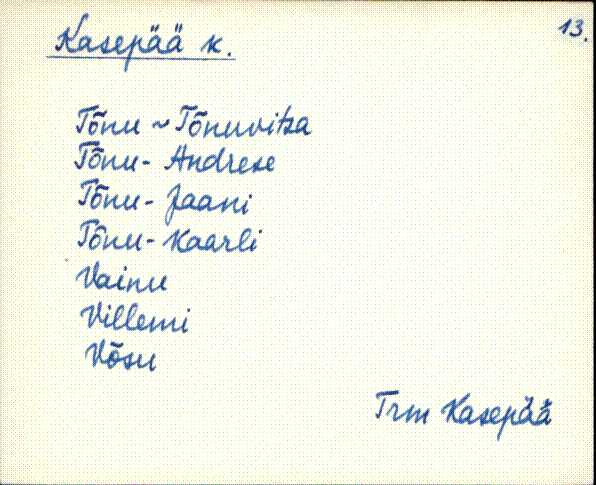 13.
Kasepää k.
Tõnu ~ Tõnuvitsa
Tõnu - Andrese
Tõnu - Jaani
Tõnu - Kaarli
Vainu
Villemi
Võsu
Trm Kasepää